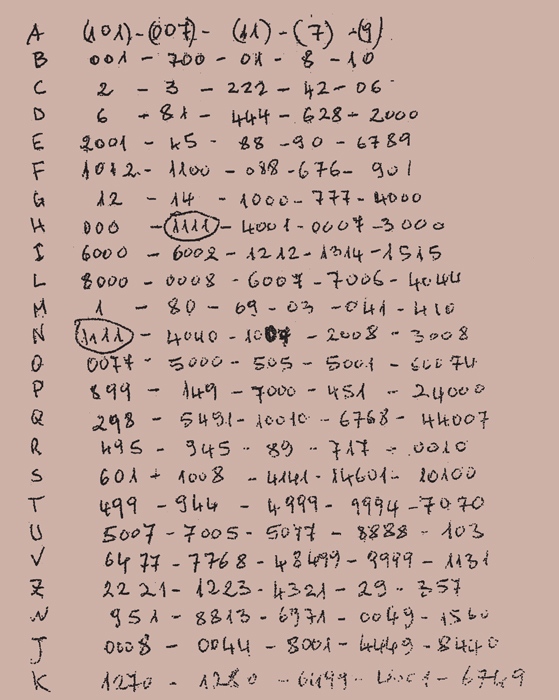 A (101)-(007)- (11)-(7)-(9)
B 001 - 700 - 01 - 8 - 10
C 2 - 3 - 222 - 42 - 06
D 6 - 81 - 444 - 628 - 2000
E 2001 - 45 - 88 - 90 - 6789
F 1012 - 1100 - 088 - 676 - 901
G 12 - 14 - 1000 - 777 - 4000
H 000 - 1111 - 4001 - 0007 - 3000
I 6000 - 6002 - 1212 - 1314 - 1515
L 8000 - 0008 - 6007 - 7006 - 4044
M 1 - 80 - 69 - 03 - 041 - 410
N 1111 - 4040 - 1007 - 2008 - 3008
O 0077 - 5000 - 505 - 5001 -
P 899 - 149 - 7000 - 451 - 24000
Q 298 - 5491 - 10010 - 6768 - 44007
R 495 - 945 - 89 - 717 - 0010
S 601 + 1008 - 4141 - 14601 - 10100
T 499 - 944 - 4999 - 9994 - 7070
U 5007 - 7005 - 5077 - 8888 - 103
V 6477 - 7768 - 48499 - 9999 - 1131
Z 2221 - 1223 - 4321 - 29 - 357
W 951 - 8813 - 6971 - 0049 - 1560
J 0008 - 0044 - 8001 - 4449 - 8440
K 1270 - 1280 - - - 6749